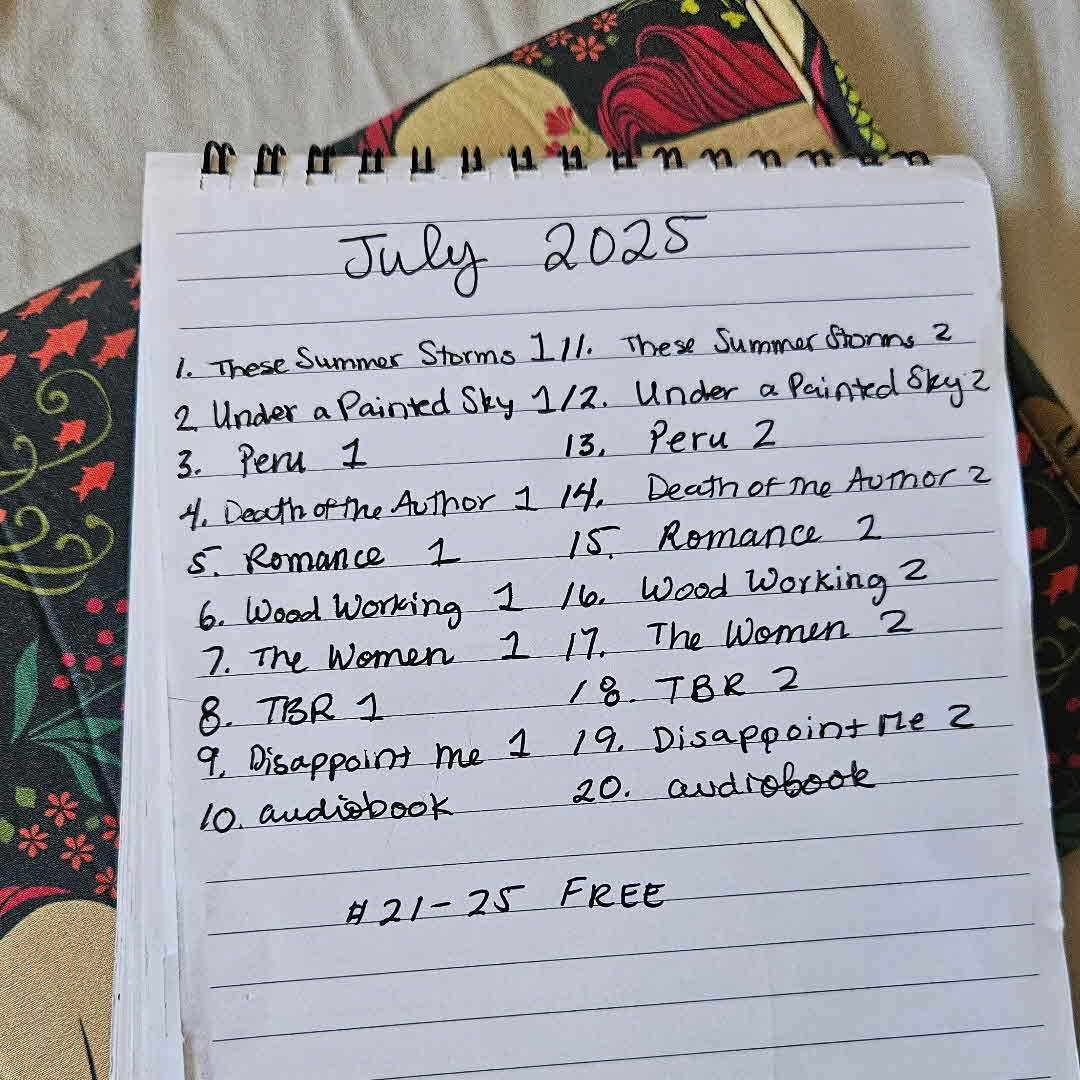 July 2025
1. These Summer Storms 1 11. These Summer Storms 2
2 Under a Painted Sky 1 12. Under a Painted Sky 2
3. Peru 1 13. Peru 2
4. Death of the Author 1 14. Death of the Author 2
5. Romance 1 15. Romance 2
6. Wood Working 1 16. Wood Working 2
7. The Women 1 17. The Women 2
8. TBR 1 18. TBR 2
9. Disappoint me 1 19. Disappoint Me 2
10. audiobook 20. audiobook
# 21-25 FREE